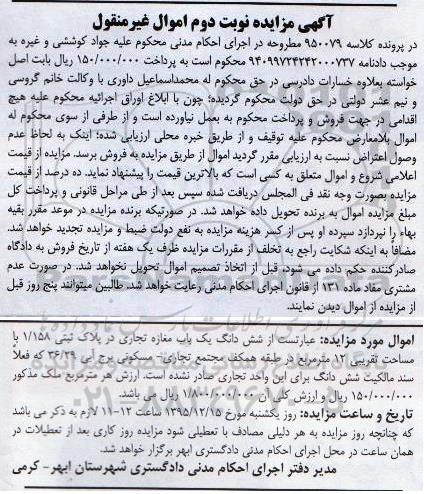 آگهی مزایده نوبت دوم اموال غیرمنقول
در پرونده کلاسه ۹۵۰۰۷۹ مطروحه در اجرای احکام مدنی محکوم علیه جواد کوششی و غیره به
موجب دادنامه ۹۴۰۹۹۷۲۴۲۴۲۰۰۰۷۳۷ محکوم است به پرداخت ۱۵۰/۰۰۰/۰۰۰ ریال بابت اصل
خواسته بعلاوه خسارات دادرسی در حق محکوم له محمداسماعیل داوری با وکالت خانم گروسی
و نیم عشر دولتی در حق دولت محکوم گردیده؛ چون با ابلاغ اوراق اجرائیه محکوم علیه هیچ
اقدامی در جهت فروش و پرداخت محکوم به بعمل نیاورده است و از طرفی از سوی محکوم له
اموال بلامعارض محکوم علیه توقیف و از طریق خبره محلی ارزیابی شده؛ اینک به لحاظ عدم
وصول اعتراض نسبت به ارزیابی مقرر گردید اموال از طریق مزایده به فروش برسد. مزایده از قیمت
اعلامی شروع و اموال متعلق به کسی است که بالاترین قیمت را پیشنهاد نماید. ده درصد از قیمت
مزایده بصورت وجه نقد فی المجلس دریافت شده سپس بعد از طی مراحل قانونی و پرداخت کل
مبلغ مزایده اموال به برنده تحویل داده خواهد شد. در صورتیکه برنده مزایده در موعد مقرر بقیه
بهاء را نپردازد سپرده او پس از کسر هزینه مزایده به نفع دولت ضبط و مزایده تجدید خواهد شد.
مضافا به اینکه شکایت راجع به تخلف از مقررات مزایده ظرف یک هفته از تاریخ فروش به دادگاه
صادرکننده حکم داده می شود، قبل از اتخاذ تصمیم اموال تحویل نخواهد شد. در صورت عدم
مشتری مفاد ماده ۱۳۱ از قانون اجرای احکام مدنی رعایت خواهد شد. طالبین میتوانند پنج روز قبل
از مزایده از اموال دیدن نمایند.
اموال مورد مزایده: عبارتست از شش دانگ یک باب مغازه تجاری در پلاک ثبتی ۱/۱۵۸ با
مساحت تقریبی ۱۲ مترمربع در طبقه همکف مجتمع تجاری- مسکونی برج آبی ۳۶/۲۹ که فعلا
سند مالکیت شش دانگ برای این واحد تجاری صادر نشده است. ارزش هر مترمربع ملک مذکور
۱۵۰/۰۰۰/۰۰۰ ریال و ارزش کلی آن ۱/۸۰۰/۰۰۰/۰۰۰ ریال می باشد.
تاریخ و ساعت مزایده: روز یکشنبه مورخ ۱۳۹۵/۱۲/۱۵ ساعت ۱۲-۱۱ لازم به ذکر می باشد
که چنانچه روز مزایده به هر دلیلی مصادف با تعطیلی شود مزایده روز کاری بعد از تعطیلات در
همان ساعت در محل اجرای احکام مدنی دادگستری ابهر برگزار خواهد شد.
مدیر دفتر اجرای احکام مدنی دادگستری شهرستان ابهر- کرمی